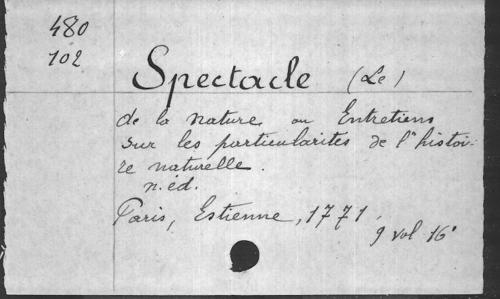 480
102
Spectacle (Le)
de la nature ou Entretiens
sur les particularites de l'histoi-
re naturelle.
n. ed.
Paris, Estienne, 1771,
9 vol 16°